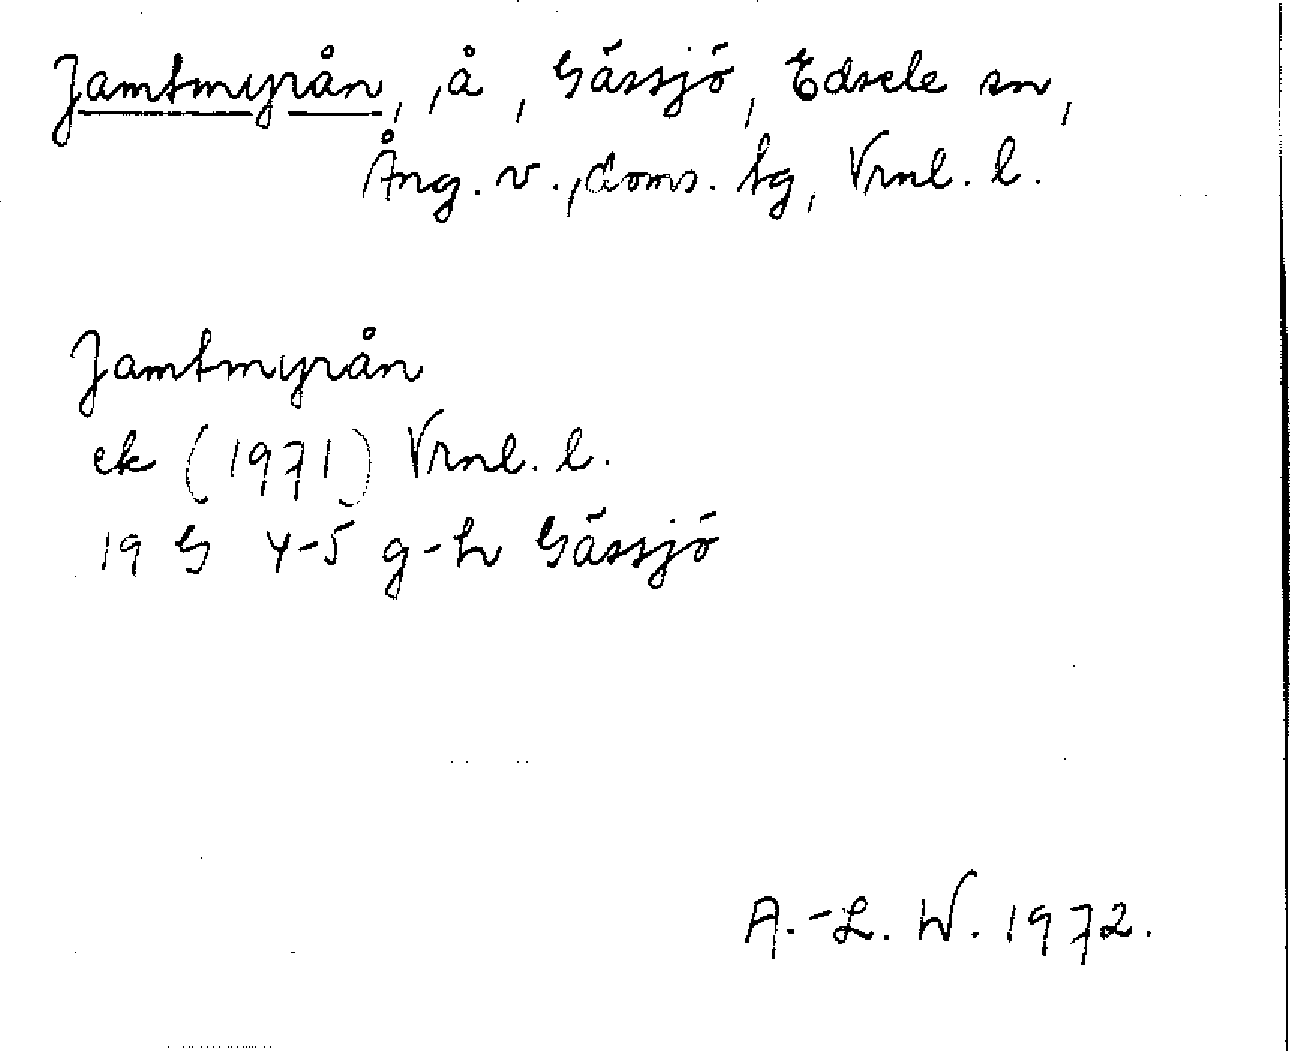 Jamtmyrån, å, Gåssjö, Edsele sn,
Ång. v., doms. tg, Vrnl. l.
Jamtmyrån
ek (1971) Vrnl. l.
19 G 4-5 g-h Gåssjö
A.-L. W. 1972.